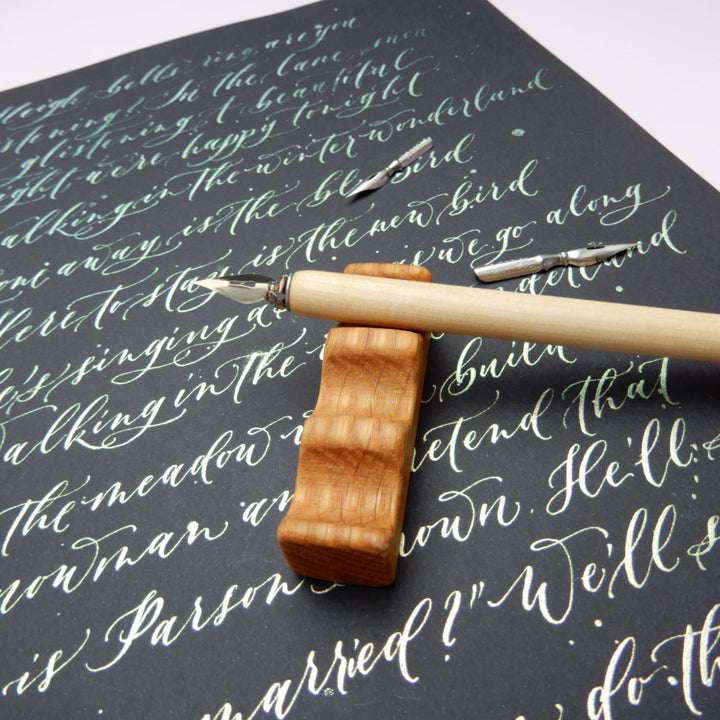 sleigh bells ring, are you
listening? In the lane snow
glistening A beautiful
sight we're happy tonight
walking in the winter wonderland
away is the bird
Here to stay is the new bird
He's singing as we go along
Walking in the wonderland
the meadow build
snowman an pretend that
is Parson rown. He'll
married?" We'll s
do th